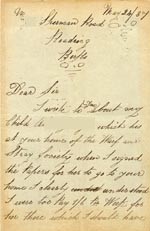 May 24/87
Road
Reading
Berks
Dear Sir
I write to about my
Child A which is
at your home of the Waif and
Stray Society when I signed
the Papers for her to go to your
home I clearly understood
I was too Pay 1/6 Week for
her there which I should have